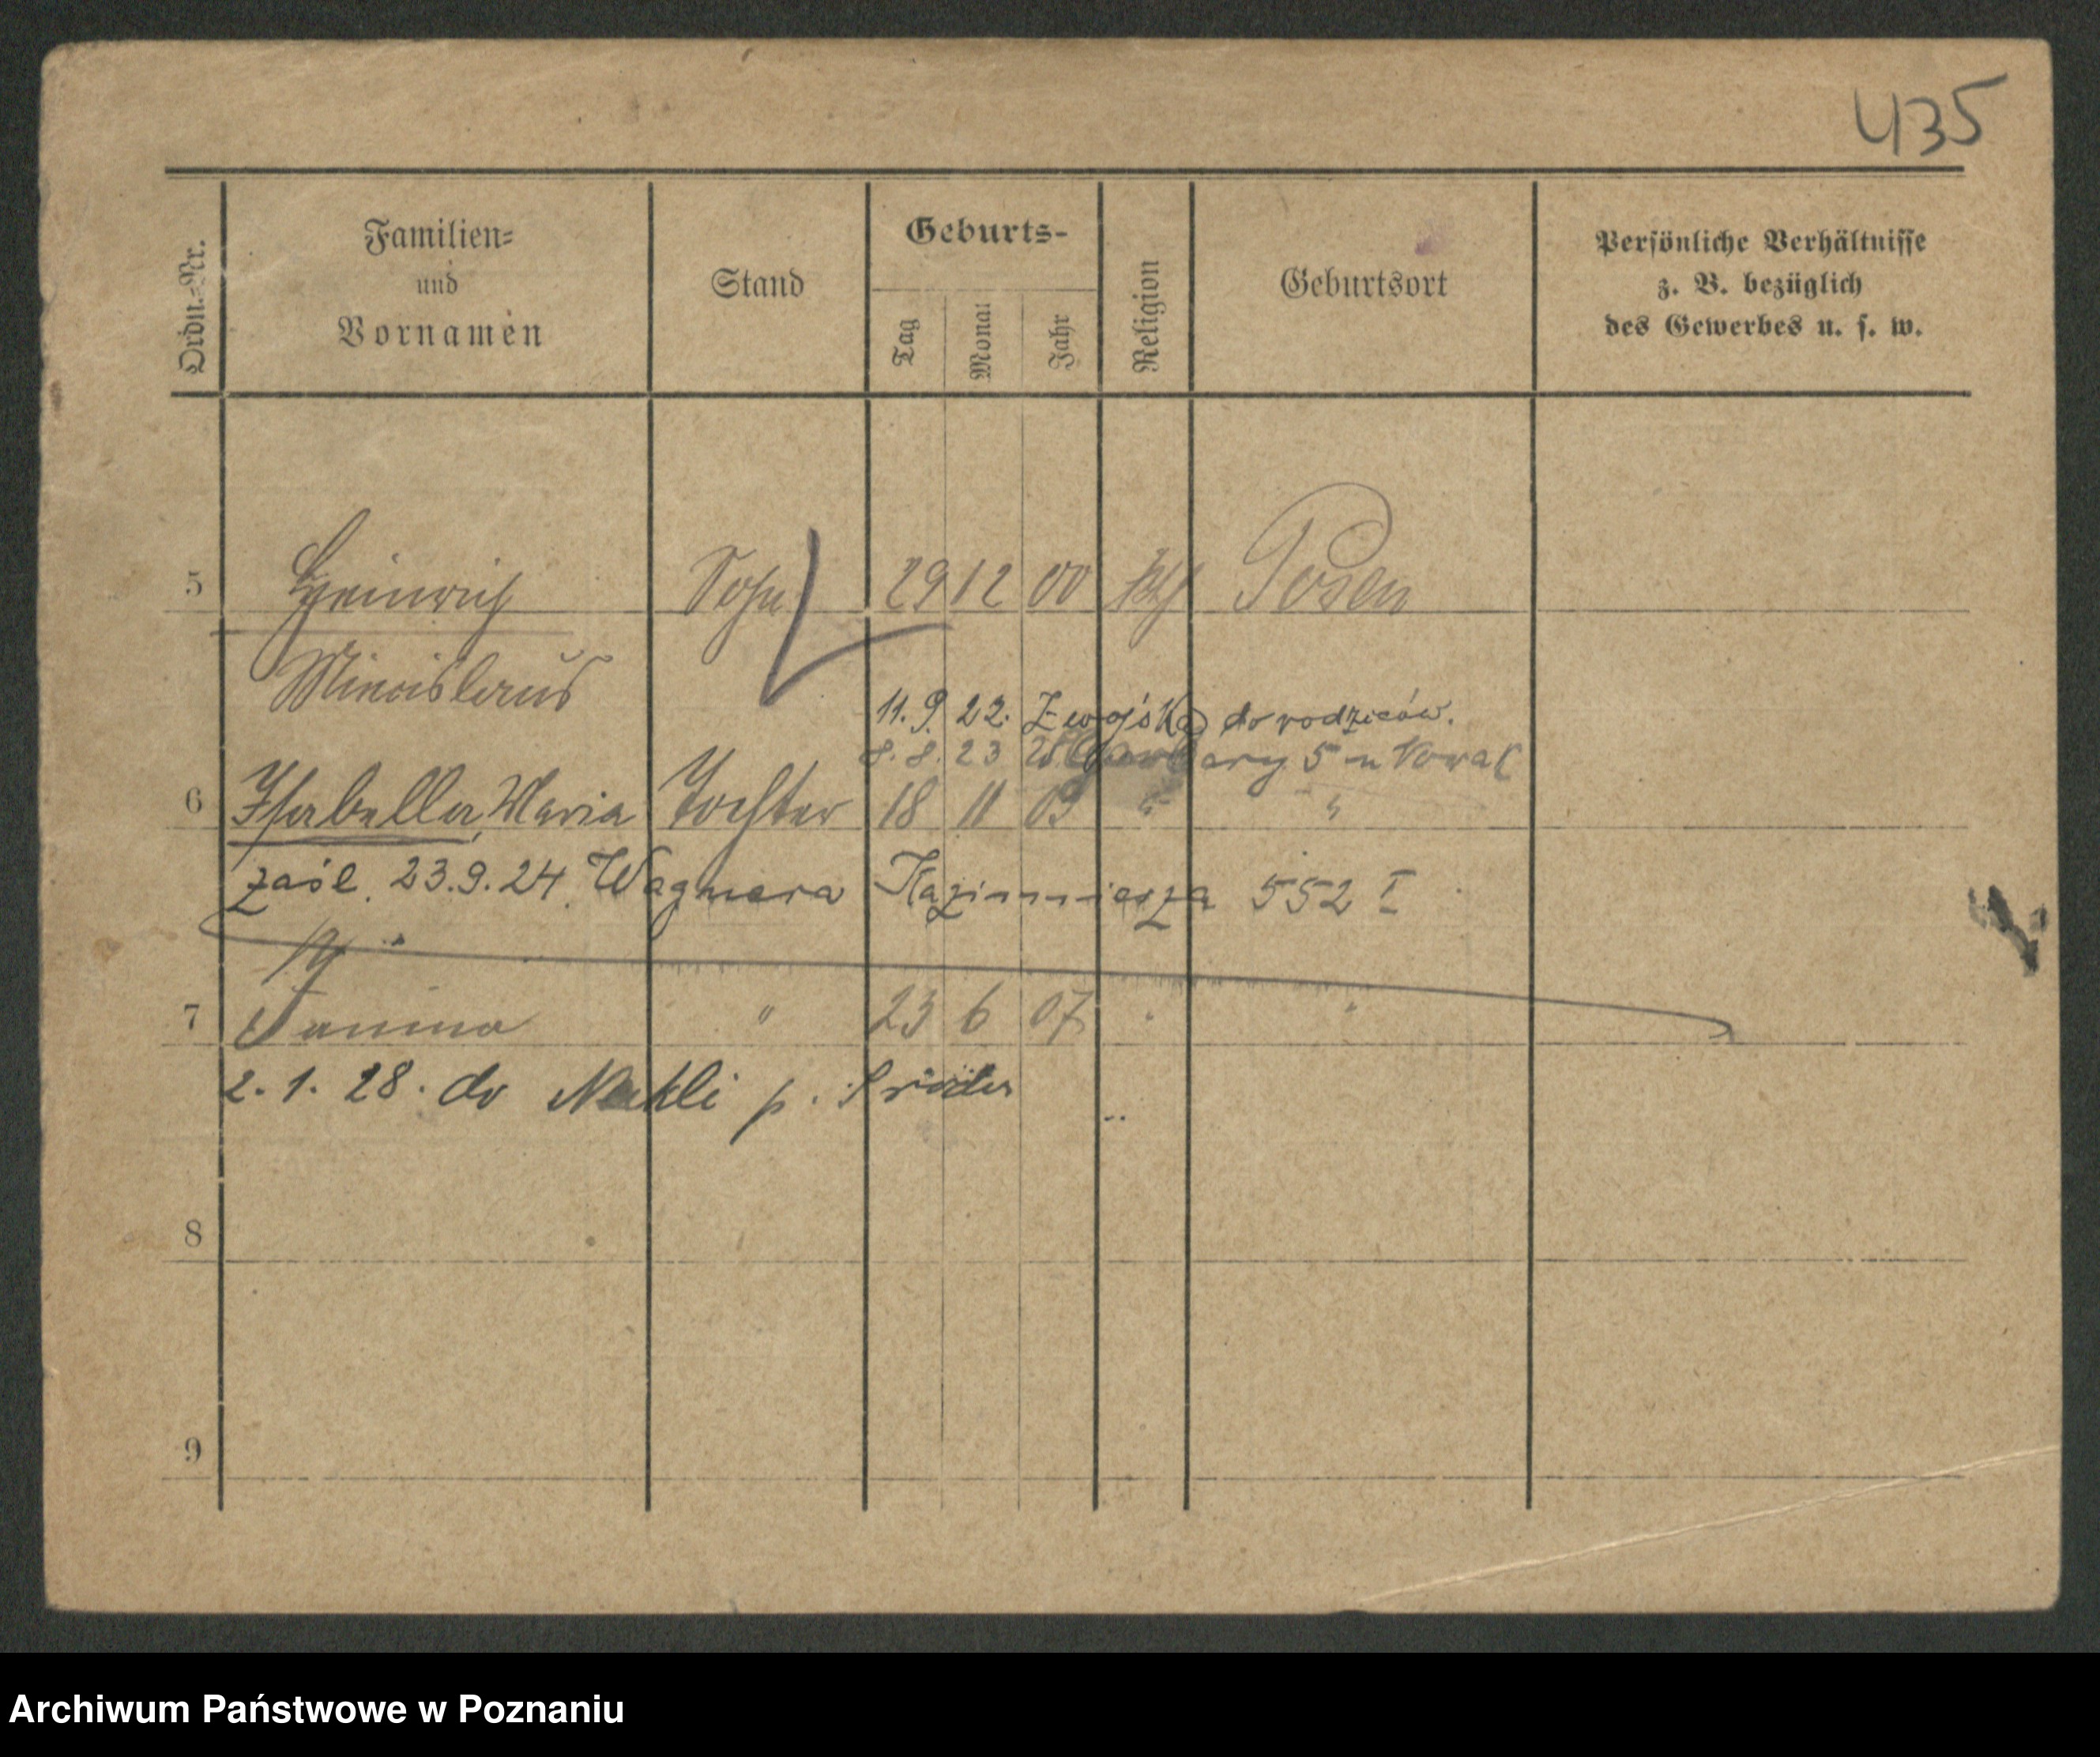 435
Ordn.-Nr.
Familien-
und
Vornamen
Stand
Geburts-
Tag
Monat
Jahr
Religion
Geburtsort
Persönliche Verhältnisse
z. B. bezüglich
des Gewerbes u. s. w.
5 Heinrich Sohn 29 12 00 kth Posen
Miecislaus
11. 9. 22. Z wojska do rodziców.
8. 8. 23 W. Garbary 5 u Nowak
6 Isabella, Maria Tochter 18 11 03 " "
zaśl. 23.9.24. Wagnera Kazimierza 552 I
7 Janina " 23 6 07 " "
2. 1. 28. do Nekli p. Środa
8
9
Archiwum Państwowe w Poznaniu